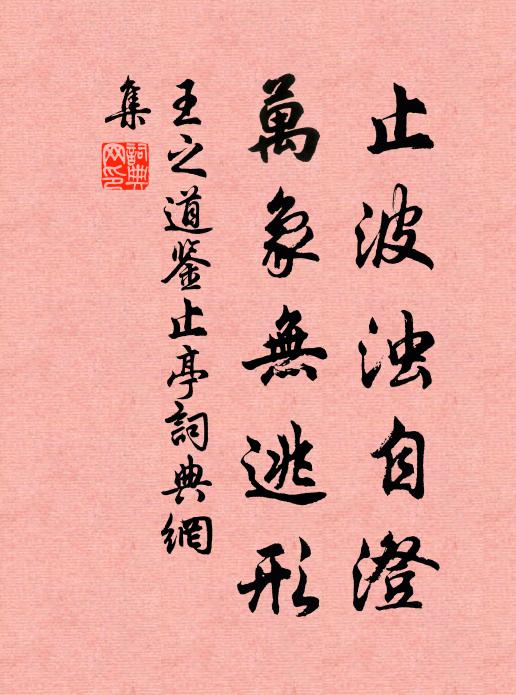 止波浊自澄
萬象無逃形
王之道鉴止亭詞典網
集
詞典網印